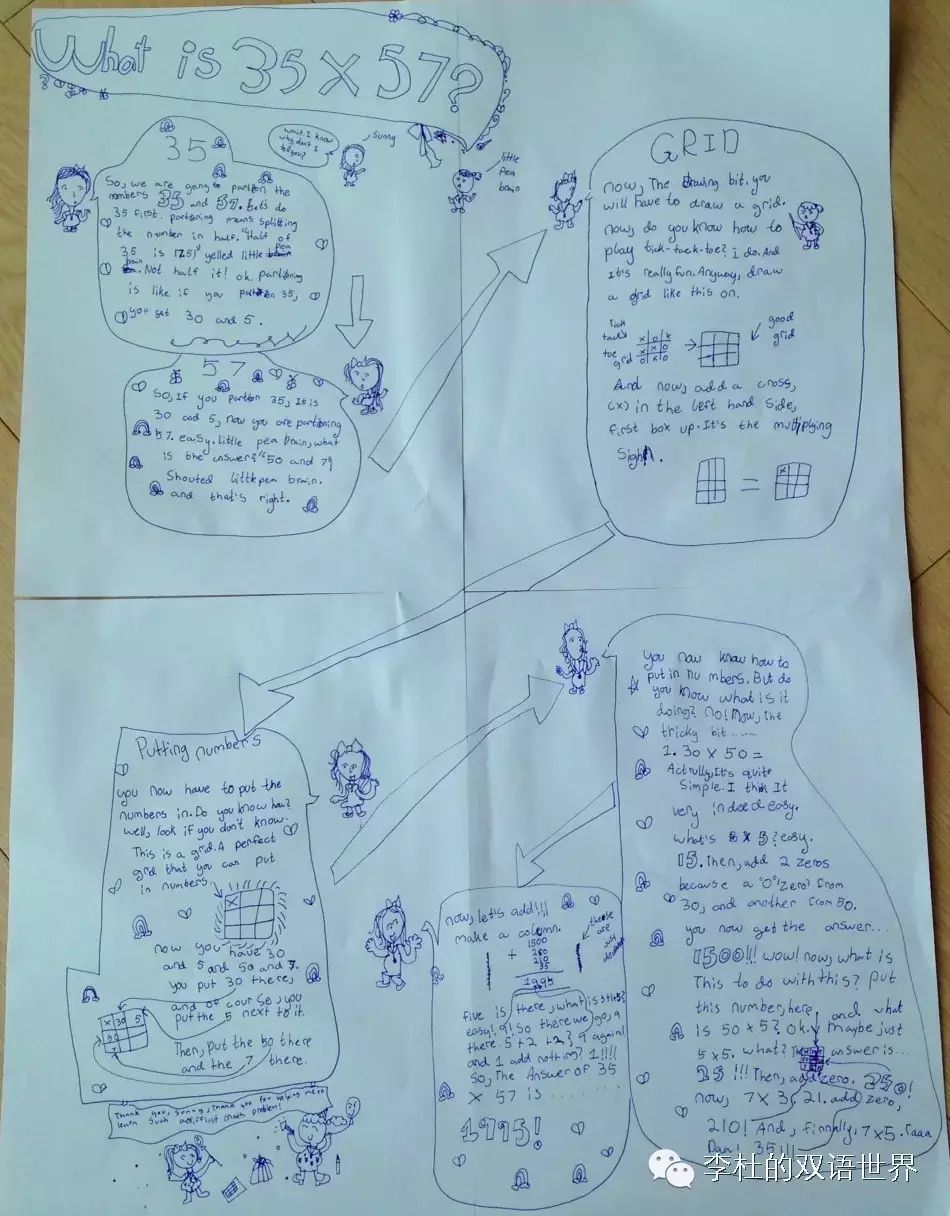 What is 35 x 57?
wait. I know
why don't I
tell you?
Sunny
little
Pea
brain
35
So, we are going to partion the
numbers 35 and 57. Let's do
35 first. partioning means splitting
the number in half. "Half of
35 is 17.5!" yelled little pea
brain. Not half it! ok. partioning
is like if you partion 35,
you get 30 and 5.
57
So, If you partion 35, It is
30 and 5, now you are partioning
57. easy. little pea brain, what
is the answer? "50 and 7"
Shouted little pea brain.
and that's right.
GRID
now, The drawing bit. you
will have to draw a grid.
now, do you know how to
play tick-tack-toe? I do. And
It's really fun. Anyway, draw
a grid like this on.
Tick
tack
toe
grid
good
grid
And now, add a cross,
(x) in the left hand side,
first box up. It's the multiplying
Sighn.
x
=
Putting numbers
you now have to put the
numbers in. Do you know how?
well, look if you don't know.
This is a grid. A perfect
grid that you can put
in numbers.
x
now you have 30
and 5 and 50 and 7.
you put 30 there,
and of course, you
put the 5 next to it.
x 30 5
50
7
Then, put the 50 there
and the 7 there.
Thank you, Sunny, Thank you for helping me to
learn Such a difficult math problem!
you now know how to
put in numbers. But do
you know what is it
doing? no! Now, the
tricky bit......
1. 30 x 50 =
Actrully, It's quite
Simple. I think It
very indeed easy.
what's 3 x 5? easy.
15. Then, add 2 zeros
because a "0" zero from
30, and another from 50.
you now get the answer...
1500!!! wow! now, what is
This to do with this? put
this number here, and what
is 50 x 5? Ok. maybe just
5 x 5. what? The answer is...
25!!! Then, add zero. 250!
now, 7 x 3, 21. add zero,
210! And, finnally, 7 x 5. Taaa
Daa! 35!!!
now, let's add!!!!
make a column.
1500
+ 250
210
35
1995
these
are
just
five is there, what is
easy! 9! So there we go, 9
there. 5 + 2 + 2? 9 again!
and 1 add nothing? 1!!!!
So, The Answer of 35
x 57 is ........
1995!
李杜的双语世界